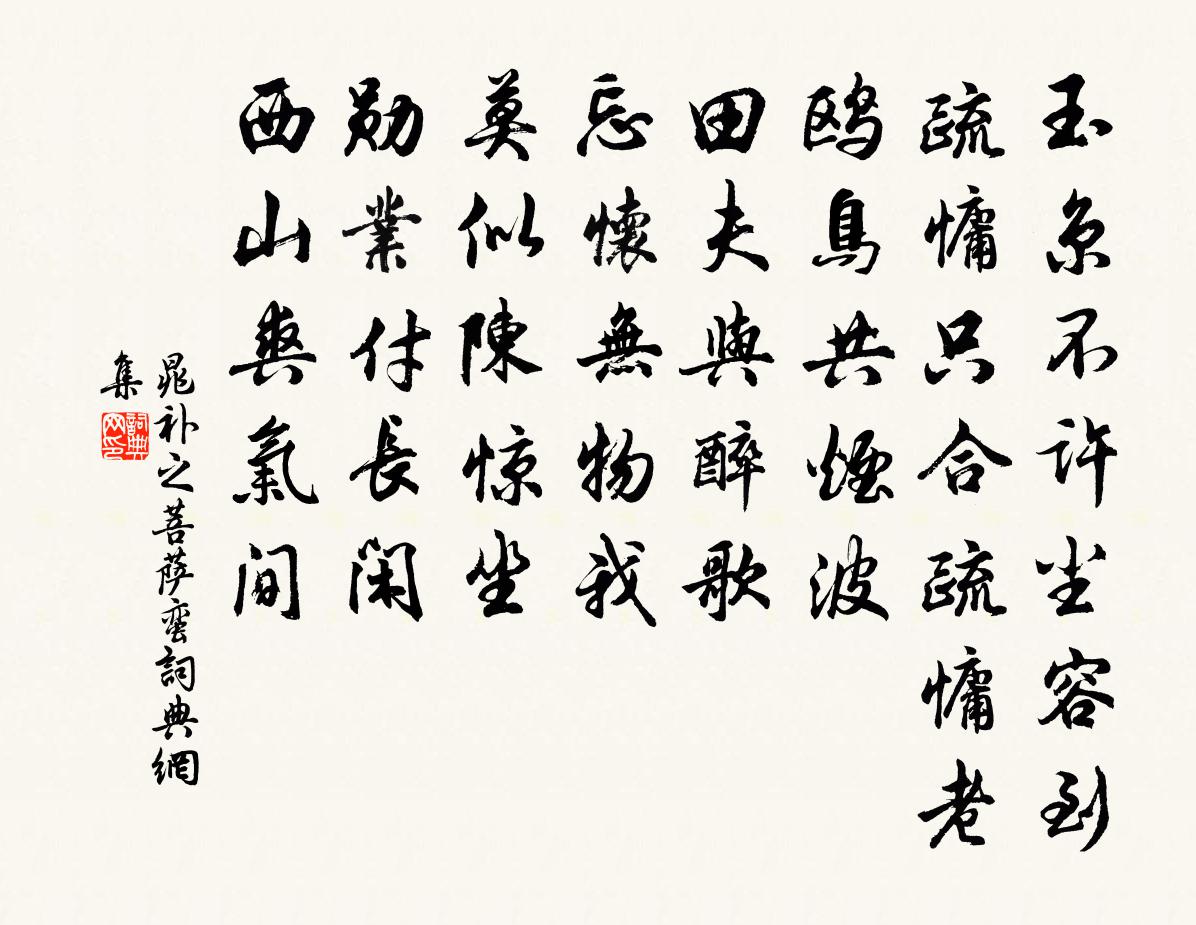 玉京不許尘容到
疏慵只合疏慵老
鸥鳥共煙波
田夫與醉歌
忘懷無物我
莫似陳惊坐
勋業付長闲
西山爽氣间
晁补之菩萨蛮詞典網
集
詞典网印